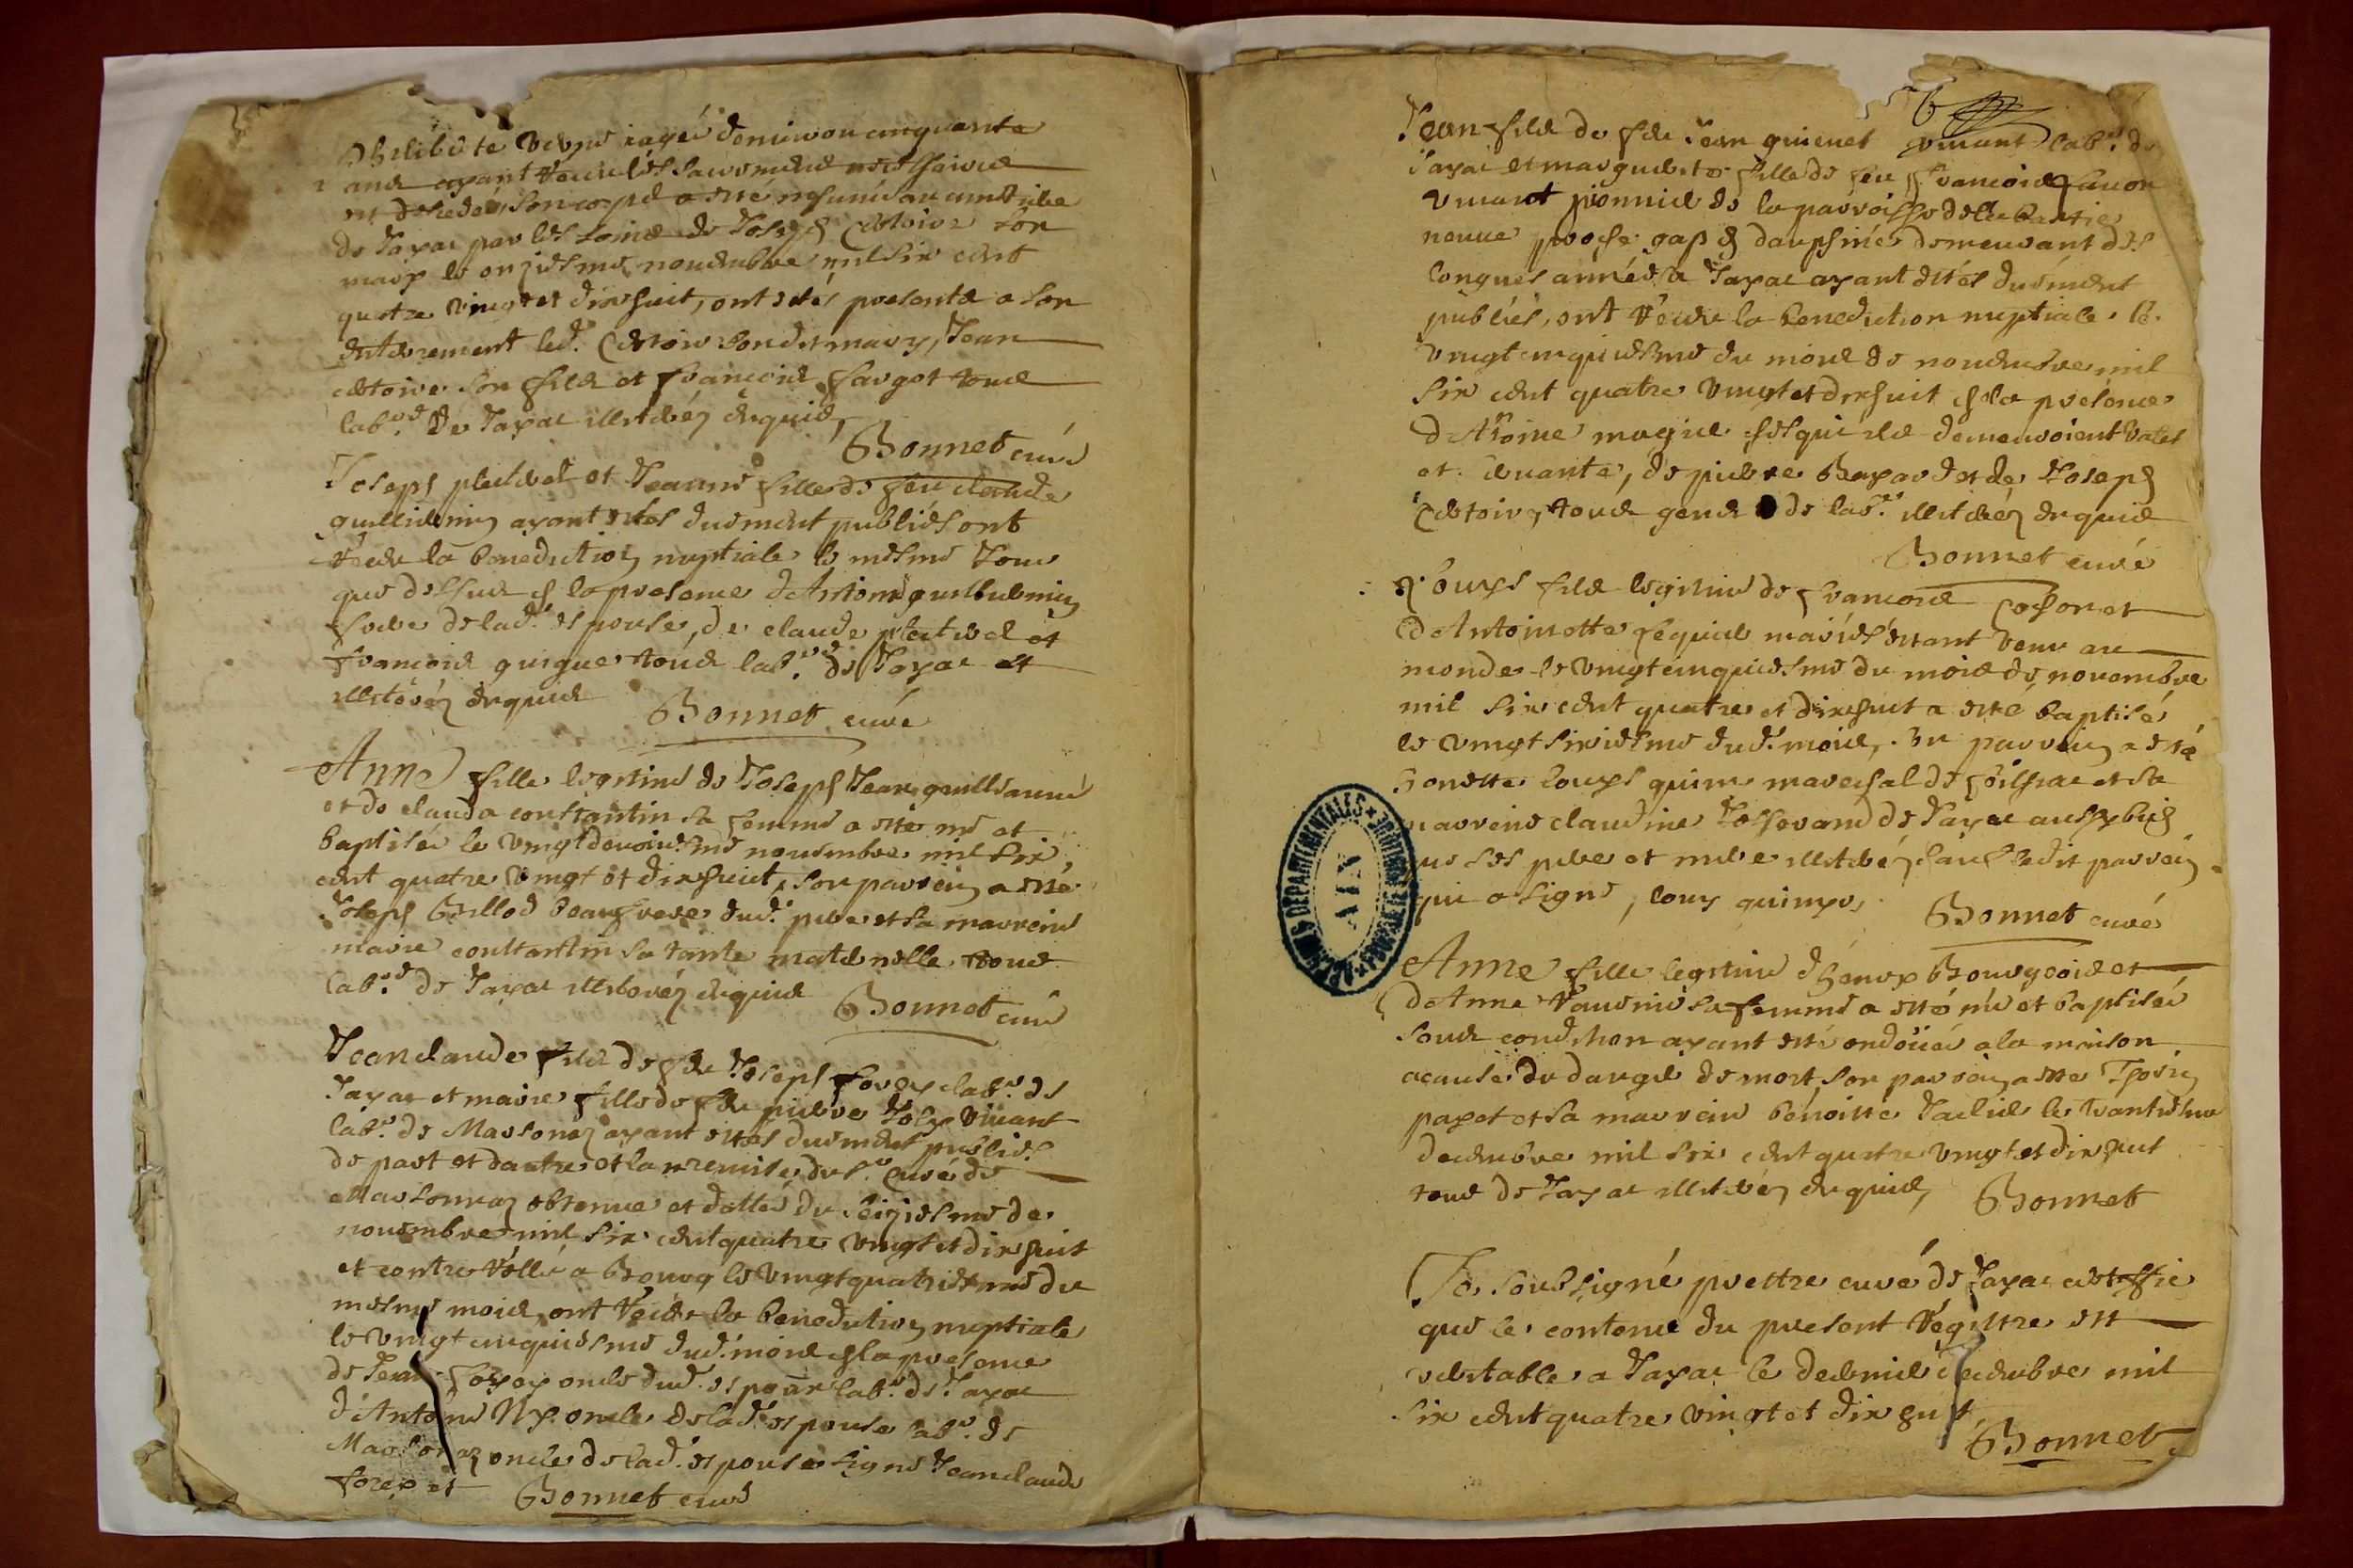 Philiberte vevre aagée d'environ cinquante
ans ayant receu les sacremens necessaires
est decedée, son corps a esté inhumé au cimetiere
de Jayat par les soins de Joseph Cestoire son
mary le onziesme novembre mil six cent
quatre vingt et dixhuit, ont estés presents a son
enterrement led. Cestoire sondit mary, Jean
cestoire son fils et françois fargot tous
labrs. de Jayat illiterés enquis
Bonnet curé
Joseph et Jeanne fille de feu claude
guillermin ayant estes duement publiés ont
receu la benediction nuptiale le mesme jour
que dessus en la presence d'Antoine guillermin
frere de lad. espouse, de claude et
françois guigue tous labrs. de Jayat et
illiterés enquis Bonnet curé
Anne fille legitime de Joseph Jean guillaume
et de clauda constantin sa femme a esté née et
baptisée le vingt deuxiesme novembre mil six
cent quatre vingt et dixhuit, son parrein a esté
Joseph Billod beaufrere dud. pere et sa marreine
marie constantin sa tante maternelle tous
labrs. de Jayat illiterés enquis
Bonnet curé
Jean claude fils de feu Joseph forex labr. de
Jayat et marie fille de feu pierre Joly vivant
labr. de Marsonaz ayant estes duement publiés
de part et dautre et la remise du sr. curé de
Marsonnaz obtenue et dattée du seiziesme de
novembre mil six cent quatre vingt et dixhuit
et contrerollé a Bourg le vingt quatriesme du
mesme mois, ont receu la benediction nuptiale
le vingt cinquiesme dud. mois en la presence
de Jean forex oncle dud. espoux labr. de Jayat
d'Antoine oncle de lad. espouse labr. de
Marsonaz oncle de lad. espouse signé Jean claude
forex et Bonnet curé
Jean fils de feu Jean guienet vivant labr. de
Jayat et marguerite fille de feu françois
vivant pionnier de la parroisse de la Bastie
neuve proche gap en dauphiné demeurant des
longues années a Jayat ayant estés duement
publiés, ont receu la benediction nuptiale le
vingt cinquiesme du mois de novembre mil
six cent quatre vingt et dixhuit en la presence
d'Antoine chesqui ils demeuroient valet
et servante, de pierre Bayard et de Joseph
Cestoire, tous gens de labr. illiterés enquis
Bonnet curé
Louys fils legitime de françois cochon et
d'Antoinette mariés estant venu au
monde le vingt cinquiesme du mois de novembre
mil six cent quatre et dixhuit a esté baptisé
le vingt sixiesme dud. mois, son parrein a esté
honeste louys mareschal de foissiat et sa
marreine claudine de Jayat aussy bien
que ses pere et mere illiterés sauf ledit parrein
qui a signé,
Bonnet curé
Anne fille legitime d'henry Bourgeois et
d'Anne sa femme a esté née et baptisée
sous condition ayant esté ondoiée a la maison
acause du danger de mort son parrein a esté
payet et sa marreine benoiste le trantiesme
decembre mil six cent quatre vingt et dixhuit
tous de Jayat illiterés enquis, Bonnet
Je soubsigné prestre curé de Jayat certiffie
que le contenu du present registre est
veritable a Jayat le dernier decembre mil
six cent quatre vingt et dix huit
Bonnet
ARCHIVES DÉPARTEMENTALES
AIN